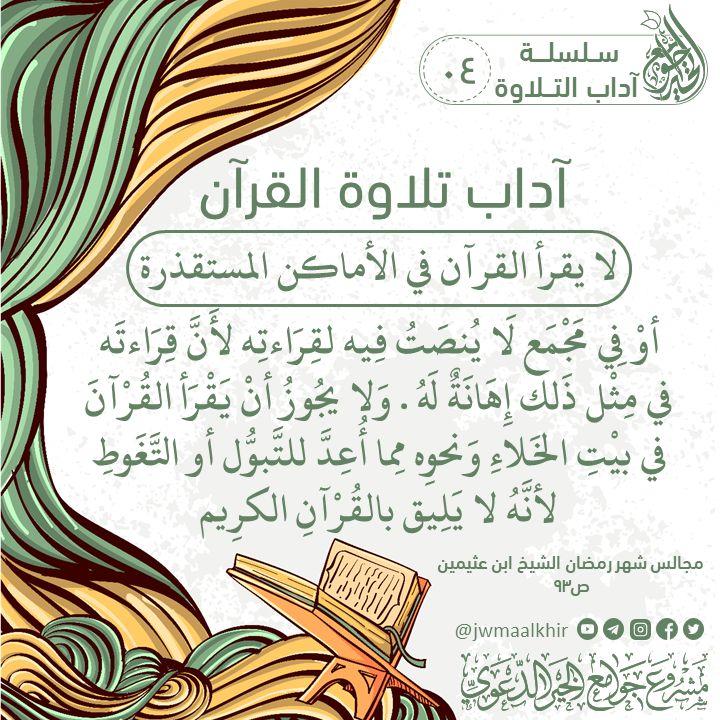 سلسلة
آداب التلاوة
٠٤
جوامع الخير
آداب تلاوة القرآن
لا يقرأ القرآن في الأماكن المستقذرة
أوْ فِي مَجْمَع لَا يُنصَتُ فِيه لقِرَاءتِه لأَنَّ قِرَاءتَه
في مِثْل ذَلك إِهَانَةٌ لَهُ . وَلا يجُوزُ أنْ يَقْرَأ القُرْآنَ
في بيْتِ الخَلاءِ وَنحوِه مِما أُعِدَّ للتَّبوُّل أو التَّغَوطِ
لأنَّهُ لا يَلِيق بالقُرْآنِ الكرِيم
مجالس شهر رمضان الشيخ ابن عثيمين
ص٩٣
@jwmaalkhir
مشروع جوامع الخير الدعوي